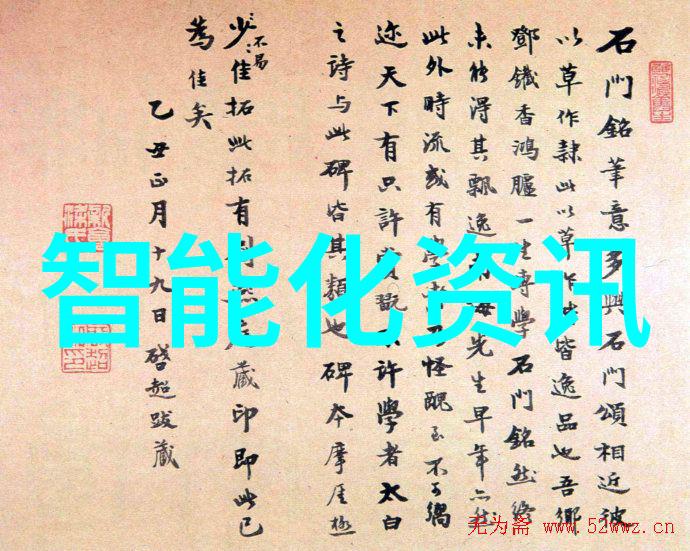 石門銘筆意多與石門頌相近彼
以草作隸此以草作皆逸品也吾鄉
鄧鐵香鴻臚一生專學石門銘然終
未能得其飄逸海先生早年亦然
此外時流或有學怪醜至不可嚮
迩天下有只許翫許學者太白
之詩與此碑皆其類也碑本摩崖極
少佳拓此拓有藏印即此已
不易
為佳矣
乙丑正月十九日啓超跋藏
智能化资讯
无为斋 www.52wwz.cn